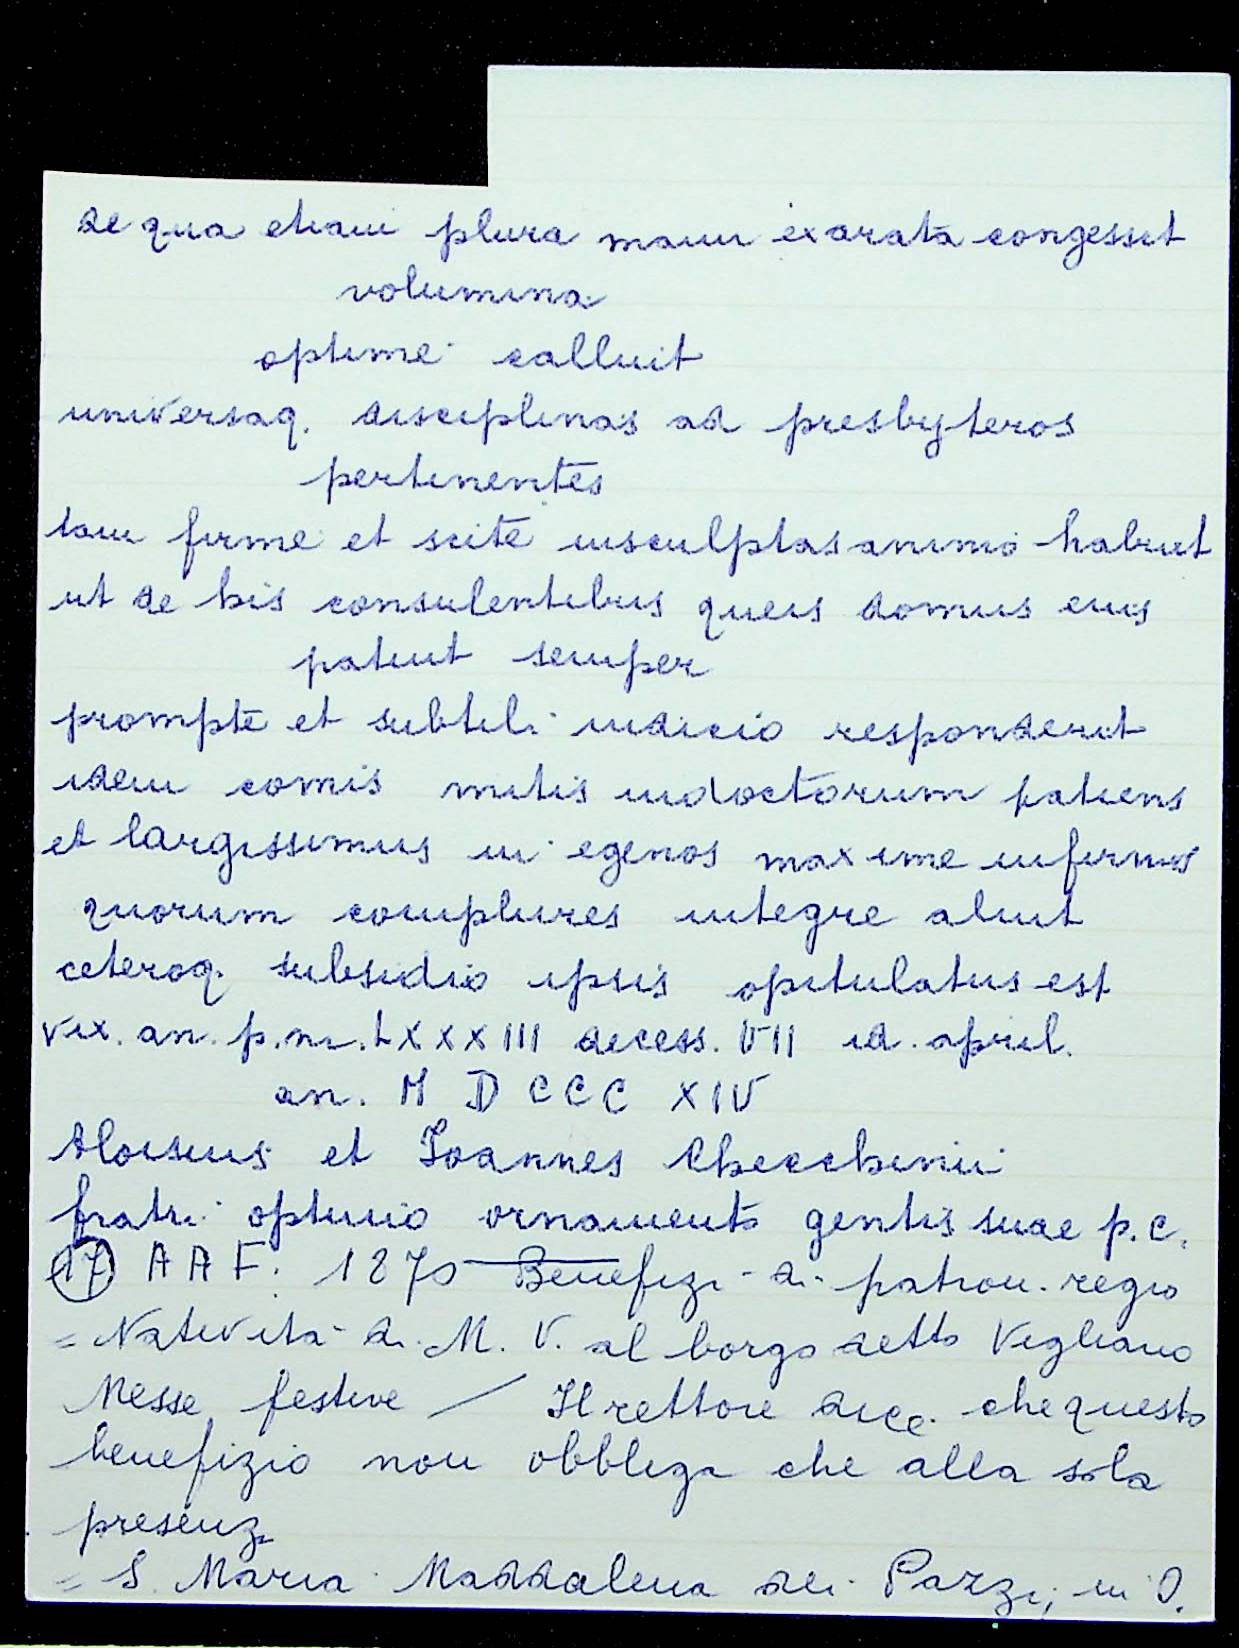 de qua etiam plura manu exarata congessit
volumina
optime calluit
universaq. disciplinas ad presbyteros
pertinentes
tam firme et scite insculptas animo habuit
ut de his consulentibus queis domus eius
patuit semper
prompte et subtili iudicio responderit
idem comis mitis indoctorum patiens
et largissimus in egenos maxime infirmos
quorum complures integre aluit
ceteroq. subsidio ipsis opitulatus est
vix. an. p.m. LXXXIII decess. VII id. april.
an. M D CCC XIV
Aloisius et Ioannes Checchinii
fratri optimo ornamento gentis suae p.c.
(17) A A F. 1270 Benefizi di patron. regio
= Natività di M. V. al borgo detto Vegliano
Messe festive / Il rettore dice che questo
benefizio non obbliga che alla sola
presenz
= S. Maria Maddalena dei Pazzi, in O.